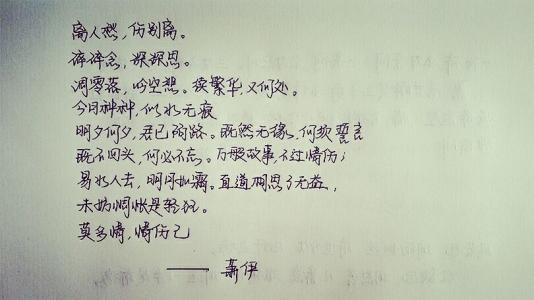 离人愁，伤别离。
碎碎念，深深思。
凋零落，吟空想。续繁华又何处。
今日种种，似水无痕
明夕何夕，君已陌路。既然无缘，何须誓言
既不回头，何必不忘。万般故事，不过情伤；
易水人去，明月如霜。直道相思了无益，
未妨惆怅是轻狂。
莫多情，情伤己
——萧伊